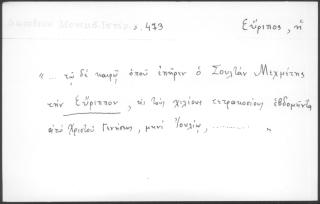 σ. 473 Εὔριπος, ἡ
«... τῷ δὲ καιρῷ ὁποῦ ἐπῆρεν ὁ Σουλτὰν Μεχμέτης
τὴν Εὔριππον, εἰς τοὺς χιλίους τετρακοσίους ἑβδομῆντα
ἀπὸ Χριστοῦ Γεννήσεως, μηνὶ Ἰουλίῳ, .......... »